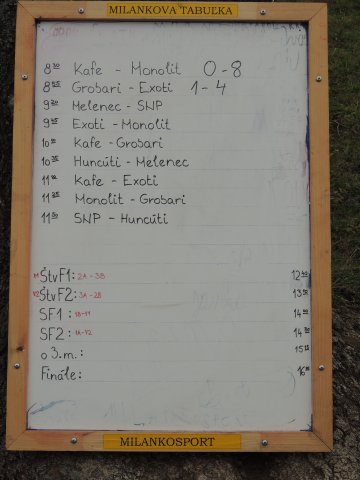 MILANKOVA TABUĽKA
8³⁰ Kafe - Monolit 0-8
8⁵⁵ Grobari - Exoti 1-4
9²⁰ Melenec - SNP
9⁴⁵ Exoti - Monolit
10¹⁰ Kafe - Grobari
10³⁵ Huncúti - Melenec
11⁰⁰ Kafe - Exoti
11²⁵ Monolit - Grobari
11⁵⁰ SNP - Huncúti
ŠtvF1: 2A-3B
ŠtvF2: 3A-2B 13
SF1: 14
SF2: 14
o 3.m.: 15
Finále: 16
MILANKOSPORT